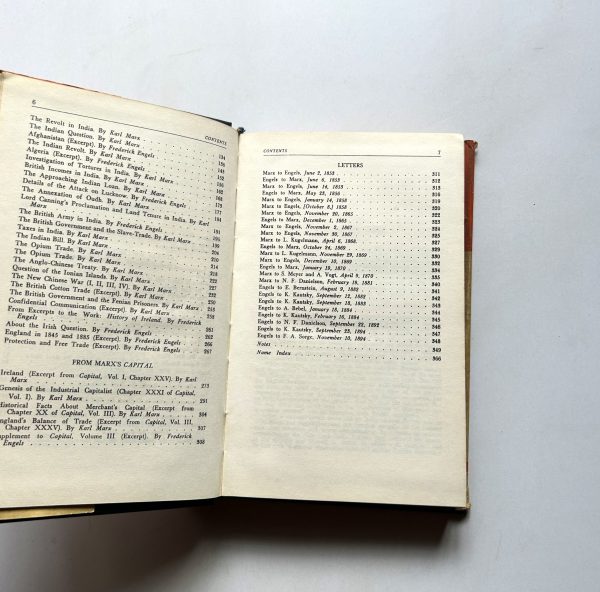 6
CONTENTS
The Revolt in India. By Karl Marx
The Indian Question. By Karl Marx
Afghanistan (Excerpt). By Frederick Engels
The Indian Revolt. By Karl Marx
Algeria (Excerpt). By Frederick Engels
Investigation of Tortures in India. By Karl Marx
British Incomes in India. By Karl Marx
The Approaching Indian Loan. By Karl Marx
Details of the Attack on Lucknow. By Frederick Engels
The Annexation of Oudh. By Karl Marx
Lord Canning's Proclamation and Land Tenure in India. By Karl
Marx
The British Army in India. By Frederick Engels
The British Government and the Slave-Trade. By Karl Marx
Taxes in India. By Karl Marx
The Indian Bill. By Karl Marx
The Opium Trade. By Karl Marx
The Opium Trade. By Karl Marx
The Anglo-Chinese Treaty. By Karl Marx
Question of the Ionian Islands. By Karl Marx
The New Chinese War (I, II, III, IV). By Karl Marx
The British Cotton Trade (Excerpt). By Karl Marx
The British Government and the Fenian Prisoners. By Karl Marx
Confidential Communication (Excerpt). By Karl Marx
From Excerpts to the Work: History of Ireland. By Frederick
Engels
About the Irish Question. By Frederick Engels
England in 1845 and 1885. By Frederick Engels
Protection and Free Trade (Excerpt). By Frederick Engels 267
FROM MARX'S CAPITAL
Ireland (Excerpt from Capital, Vol. I, Chapter XXV). By Karl
Marx 273
Genesis of the Industrial Capitalist (Chapter XXXI of Capital,
Vol. I). By Karl Marx 291
Historical Facts About Merchant's Capital (Excerpt from
Chapter XX of Capital, Vol. III). By Karl Marx 304
England's Balance of Trade (Excerpt from Capital, Vol. III,
Chapter XXXV). By Karl Marx 307
Supplement to Capital, Volume III (Excerpt). By Frederick
Engels 308
CONTENTS 7
LETTERS
Marx to Engels, June 2, 1853 311
Engels to Marx, June 6, 1853 312
Marx to Engels, June 14, 1853
Engels to Marx, May 23, 1856
Marx to Engels, January 14, 1858
Marx to Engels, [October 8,] 1858
Marx to Engels, November 20, 1865
Marx to Engels, December 1, 1865
Marx to Engels, November 2, 1867
Marx to Engels, November 30, 1867
Marx to L. Kugelmann, April 6, 1868
Engels to Marx, October 24, 1869
Marx to L. Kugelmann, November 29, 1869
Marx to Engels, December 10, 1869
Engels to Marx, January 19, 1870
Marx to S. Meyer and A. Vogt, April 9, 1870
Marx to N. F. Danielson, February 19, 1881
Engels to E. Bernstein, August 9, 1882
Engels to K. Kautsky, September 12, 1882
Engels to K. Kautsky, September 18, 1883
Engels to A. Bebel, January 18, 1884
Engels to K. Kautsky, February 16, 1884
Engels to N. F. Danielson, September 22, 1892
Engels to K. Kautsky, September 23, 1894
Engels to F. A. Sorge, November 10, 1894
Notes 349
Name Index 366